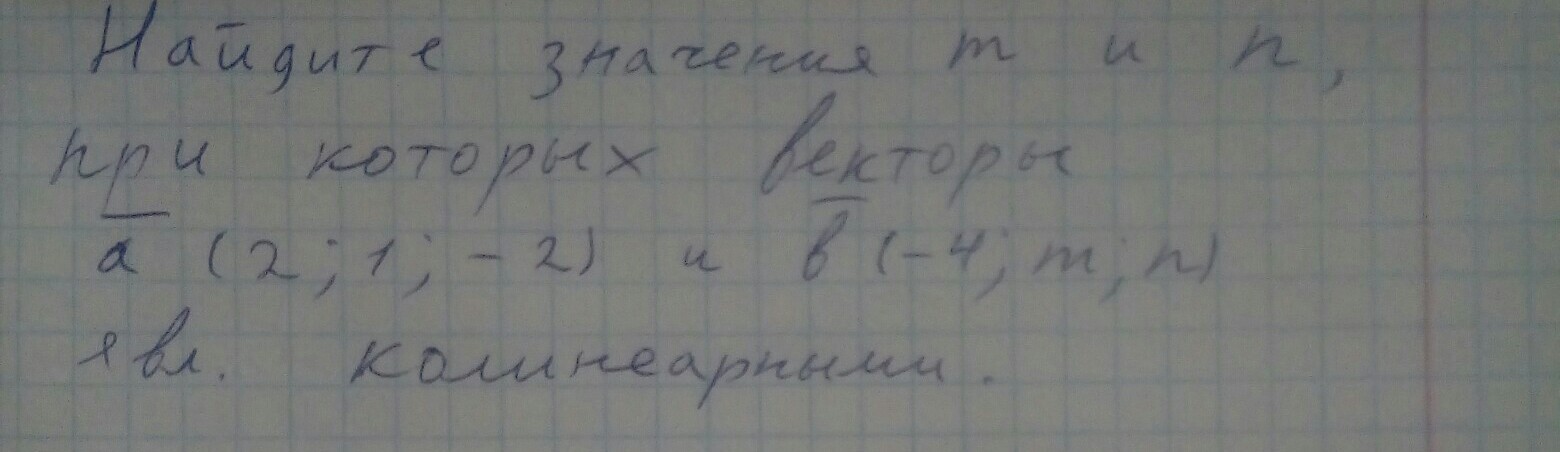 Найдите значения m и n,
при которых векторы
a (2; 1; -2) и в (-4; m; n)
явл. колинеарными.